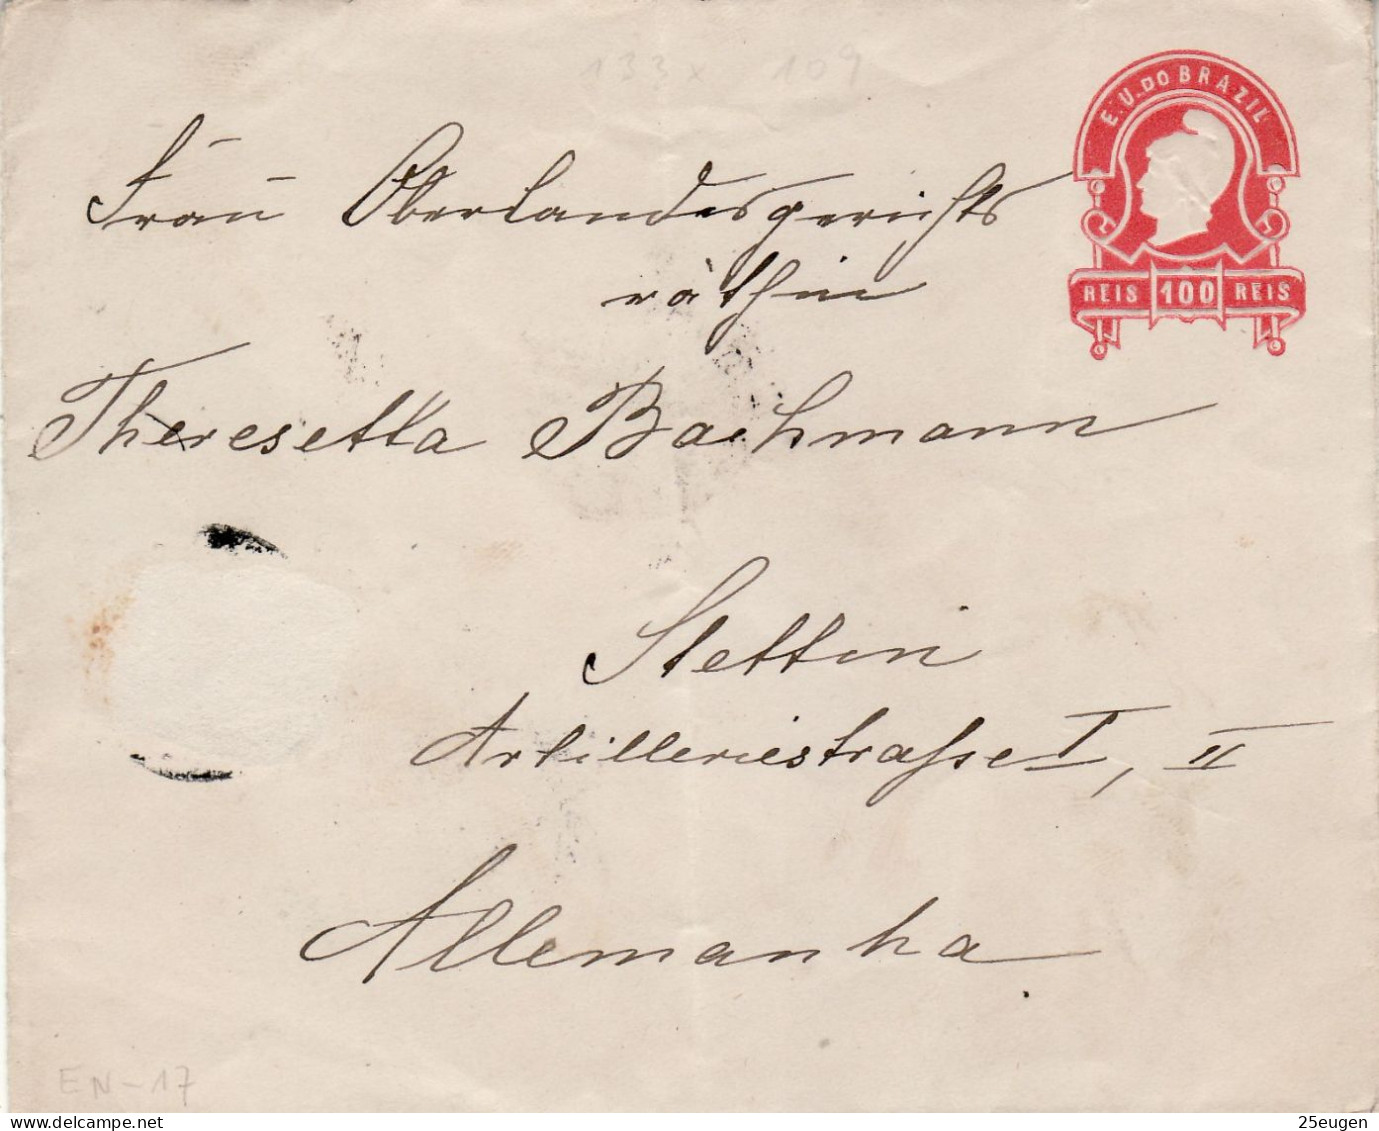 133 x 109
E. U. DO BRAZIL
REIS 100 REIS
Frau Oberlandesgerichts
räthin
Theresetta Bachmann
Stettin
Artilleriestraße I, II
Allemanha
EN-17
delcampe.net
25eugen